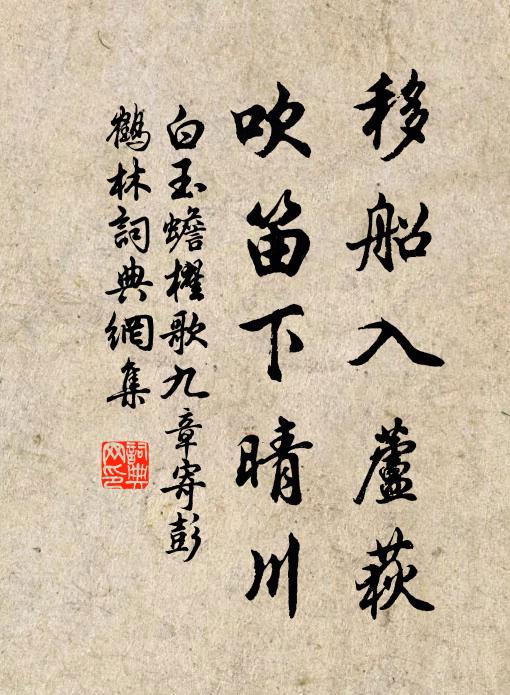 移船入蘆荻
吹笛下晴川
白玉蟾櫂歌九章寄彭
鶴林詞典網集
詞典網印